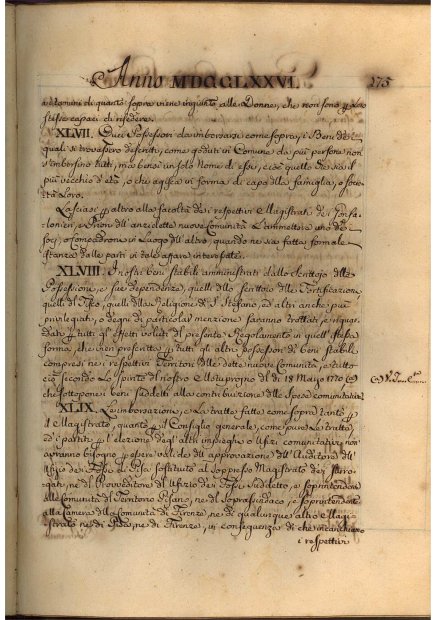 Anno MDCCLXXVI. 275
ad Uomini di quanto sopra viene ingiunto alle Donne, che non sono p Loro
stesse capaci di risedere.
XLVII. Quei Possessori da imborsarsi come sopra, i Beni de
quali si trovassero descritti, come goduti in Comune da più persone non
s'imborsino tutti, ma bensì un solo Nome di essi, cioè quello che sia il
più vecchio d'età, o che agisca in forma di capo della famiglia, o
Loro.
Lasciasi p altro alla facoltà dei respettivi Magistrati dei Gonfa=
lonieri, e Priori dell' anzidette nuove Comunità l'ammettere uno dei
Soci, o Compadroni in Luogo dell' altro, quando ne sia fatta formale
istanza dalle parti in tale affare interessate.
XLVIII. I nostri beni stabili amministrati dallo Scrittojo delle
Possessioni, e sue dependenze, quelli dello Scrittoio delle Fortificazioni,
quelli del Fisco, quelli della Religione di S. Stefano, ed altri anche più
privilegiati, o degni di particolar menzione saranno trattati, e riguar=
dati p tutti gli effetti voluti dal presente Regolamento in quell' istessa
forma, che vien prescritta p tutti gli altri possessori di beni stabili
compresi nei respettivi Territori delle dette nuove Comunità, e tutto
ciò secondo Lo spirito del nostro Motuproprio del dì 18 Marzo 1770
che sottopone i beni suddetti alla contribuzione delle spese comunitative.
XLIX. Le imborsazioni, e Le tratte fatte come sopra tanto p
il Magistrato, quanto p il Consiglio generale, come pure Le tratte,
ed i partiti p l'elezione degli altri impieghi o Ufizi comunitativi non
avranno bisogno p essere valide dell' approvazione dell' Auditore dell'
Ufizio dei Fossi di Pisa sostituto al soppresso Magistrato dei Surro=
gati, nè del Provveditore dell' Ufizio dei Fossi suddetto, e soprintendente
alle Comunità del Territorio Pisano, nè del Soprasindaco, e Soprintendente
alla Camera delle Comunità di Firenze, nè di qualunque altro Magi=
strato nè di Pisa, nè di Firenze, in conseguenza di che incarichiamo
i respettivi